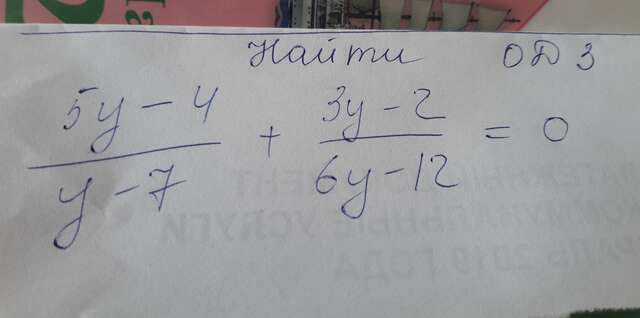 Найти ОДЗ
5y-4/y-7 + 3y-2/6y-12 = 0